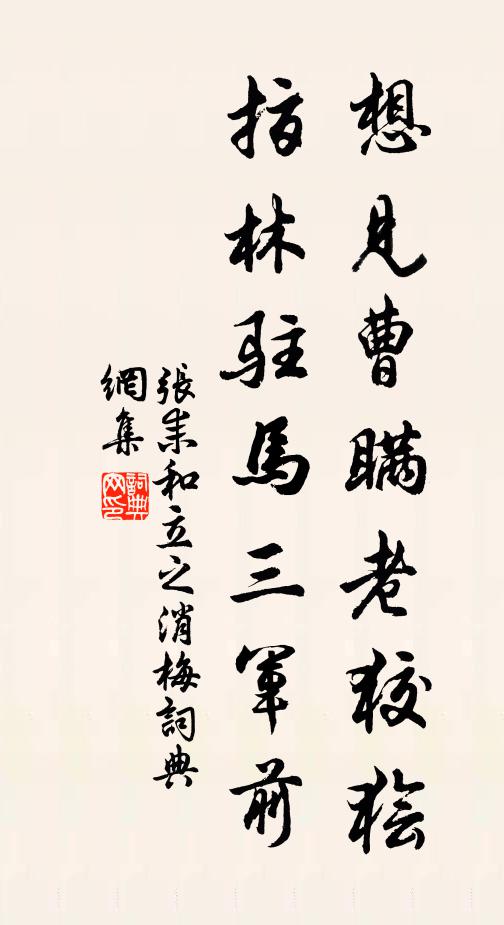 想見曹瞞老狡狯
指林駐馬三軍前
張耒和立之消梅詞典
網集
詞典
网印